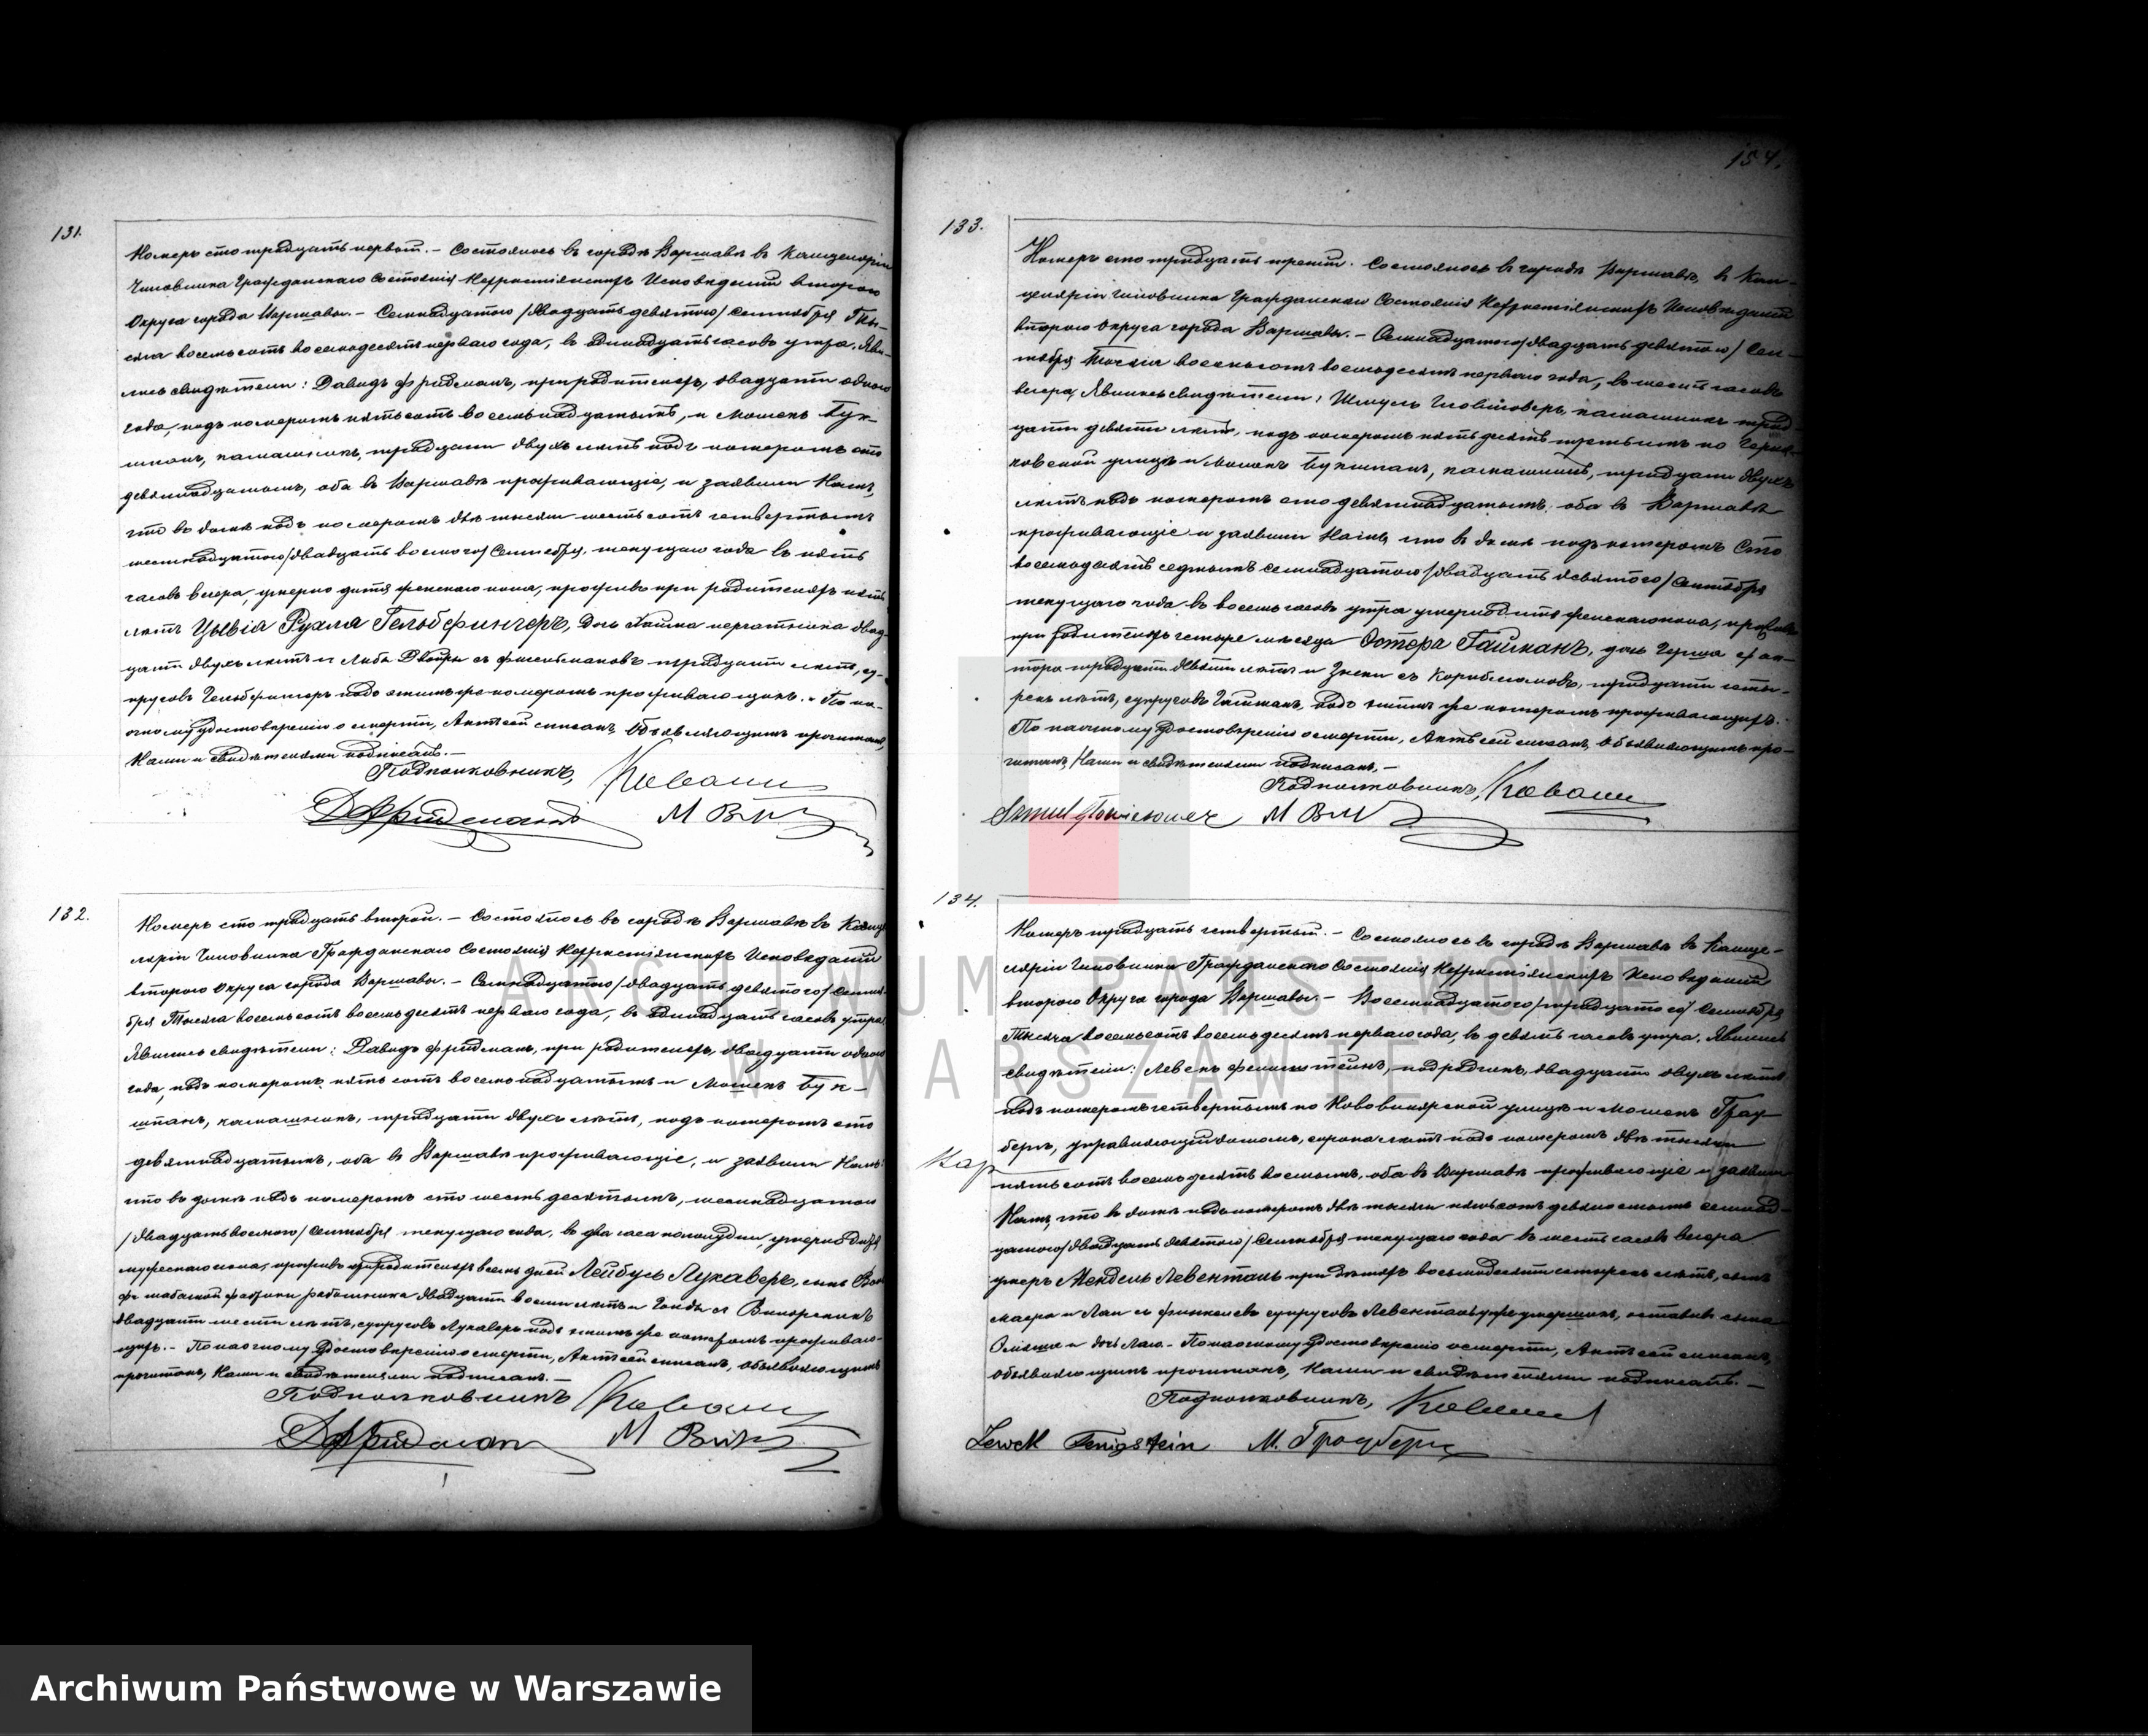 131.
Номеръ сто тридцать первый. – Состоялось въ городѣ Варшавѣ въ Канцеляріи
Чиновника Гражданскаго Состоянія Нехристіянскихъ Исповѣданій втораго
Округа города Варшавы. – Семнадцатого /двадцать девятого/ Сентября Ты-
сяча восемьсотъ восемьдесятъ перваго года, въ одинадцать часовъ утра, Яви-
лись свидѣтели: Давидъ Фридманъ, при родителяхъ, двадцати одного
года, подъ номеромъ пятьсотъ восемьнадцатымъ, и Мошекъ Бук-
шпанъ, камашникъ, тридцати двухъ лѣтъ подъ номеромъ сто
девятнадцатымъ, оба въ Варшавѣ проживающіе, и заявили Намъ,
что въ домѣ подъ номеромъ двѣ тысячи шестьсотъ четвертымъ
шестнадцатого /двадцать восьмого/ Сентября, текущаго года въ пять
часовъ вечера, умерло дитя женскаго пола, проживъ при родителяхъ пять
лѣтъ Цывія Рухля Гельбфингеръ, дочь Хаима перчатника двад-
цати двухъ лѣтъ и Либы Двойры съ Фишельмановъ тридцати лѣтъ, су-
пруговъ Гельбфингеръ подъ этимъ же номеромъ проживающихъ. – По на-
очному удостовѣренію о смерти, Актъ сей списанъ, Объявляющимъ прочитанъ,
Нами и свидѣтелями подписанъ. –
Подполковникъ,
ДФридманъ
132.
Номеръ сто тридцать второй. – Состоялось въ городѣ Варшавѣ въ Канце-
ляріи Чиновника Гражданскаго Состоянія Нехристіянскихъ Исповѣданій
втораго Округа города Варшавы. – Семнадцатого /двадцать девятого/ Сентя-
бря Тысяча восемьсотъ восемьдесятъ перваго года, въ одинадцать часовъ утра,
Явились свидѣтели: Давидъ Фридманъ, при родителяхъ, двадцати одного
года, подъ номеромъ, пятьсотъ восемьнадцатымъ и Мошекъ Бук-
шпанъ, камашникъ, тридцати двухъ лѣтъ, подъ номеромъ сто
девятнадцатымъ, оба въ Варшавѣ проживающіе, и заявили Намъ:
что въ домѣ подъ номеромъ сто шестьдесятымъ, шестнадцатого
/двадцать восьмого/ Сентября текущаго года, въ два часа пополудни, умерло дитя
мужескаго пола, проживъ при родителяхъ восемь дней Лейбусь Лукаверъ, сынъ
табачной фабрики работника двадцати восьми лѣтъ и съ
двадцати шести лѣтъ, супруговъ Лукаверъ подъ этимъ же номеромъ проживаю-
щихъ. – По наочному удостовѣренію о смерти, Актъ сей списанъ, объявляющимъ
прочитанъ, Нами и свидѣтелями подписанъ. –
Подполковникъ
ДФридманъ
154.
133.
Номеръ сто тридцать третій. Состоялось въ городѣ Варшавѣ, въ Кан-
целяріи Чиновника Гражданскаго Состоянія Нехристіянскихъ Исповѣданій
втораго Округа города Варшавы. – Семнадцатого /двадцать девятого/ Сен-
тября Тысяча восемьсотъ восемьдесятъ перваго года, въ шесть часовъ
вечера, Явились свидѣтели: Шмуль Гловичоверъ, камашникъ трид-
цати девяти лѣтъ, подъ номеромъ пятьдесятъ третьимъ по Черня-
ковской улицѣ и Мошекъ Букшпанъ, камашникъ, тридцати двухъ
лѣтъ подъ номеромъ сто девятнадцатымъ, оба въ Варшавѣ
проживающіе и заявили Намъ, что въ домѣ подъ номеромъ Сто
восемьдесятъ седьмымъ семнадцатого /двадцать девятого/ Сентября
текущаго года въ восемь часовъ утра умерло дитя женскаго пола, проживъ
при родителяхъ четыре мѣсяца Эстера Гайманъ, дочь Герша фак-
тора тридцати девяти лѣтъ и съ тридцати четы-
рехъ лѣтъ, супруговъ Гайманъ, подъ этимъ же номеромъ проживающихъ. –
По наочному удостовѣренію о смерти, Актъ сей списанъ, Объявляющимъ про-
читанъ, Нами и свидѣтелями подписанъ. –
Подполковникъ,
Szmul
134.
Номеръ тридцать четвертый. – Состоялось въ городѣ Варшавѣ въ Канце-
ляріи Чиновника Гражданскаго Состоянія Нехристіянскихъ Исповѣданій
втораго Округа города Варшавы. – Восемнадцатого /тридцатого/ Сентября
Тысяча восемьсотъ восемьдесятъ перваго года, въ девять часовъ утра, Явились
свидѣтели: Левекъ Фенигштейнъ, подрядчикъ, двадцати двухъ лѣтъ,
подъ номеромъ четвертымъ по Нововинярской улицѣ и Мошекъ Грау-
бергъ, управляющій домомъ, сорока лѣтъ подъ номеромъ двѣ тысячи
пятьсотъ восемьдесятъ восьмымъ, оба въ Варшавѣ проживающіе и заявили
Намъ, что въ домѣ подъ номеромъ двѣ тысячи пятьсотъ девяностымъ семнад-
цатого /двадцать девятого/ Сентября текущаго года въ шесть часовъ вечера
умеръ Мендель Левенталь при дѣтяхъ восьмидесяти четырехъ лѣтъ, сынъ
Маера и Лаи съ Финкелевъ супруговъ Левенталь уже умершихъ, оставивъ сына
и дочь Лаю. – По наочному удостовѣренію о смерти, Актъ сей списанъ,
объявляющимъ прочитанъ, Нами и свидѣтелями подписанъ. –
Подполковникъ,
Lewek Fenigstein М. Граубергъ
ARCHIWUM PAŃSTWOWE
W WARSZAWIE
Archiwum Państwowe w Warszawie